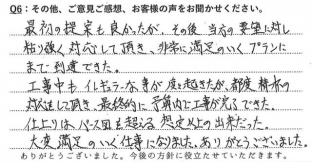 Q6：その他、ご意見ご感想、お客様の声をお聞かせください。
最初の提案も良かったが、その後 当方の要望に対し
粘り強く対応して頂き、非常に満足のいくプランに
まで到達できた。
工事中も イレギュラーな事が度々起きたが、都度 精力の
対応をして頂き、最終的に予算内で工事が完了できた。
仕上りは、パース図を超える 想定以上の出来だった。
大変満足のいく仕事になりました。ありがとうございました。
ありがとうございました。今後の方針に役立たせていただきます。